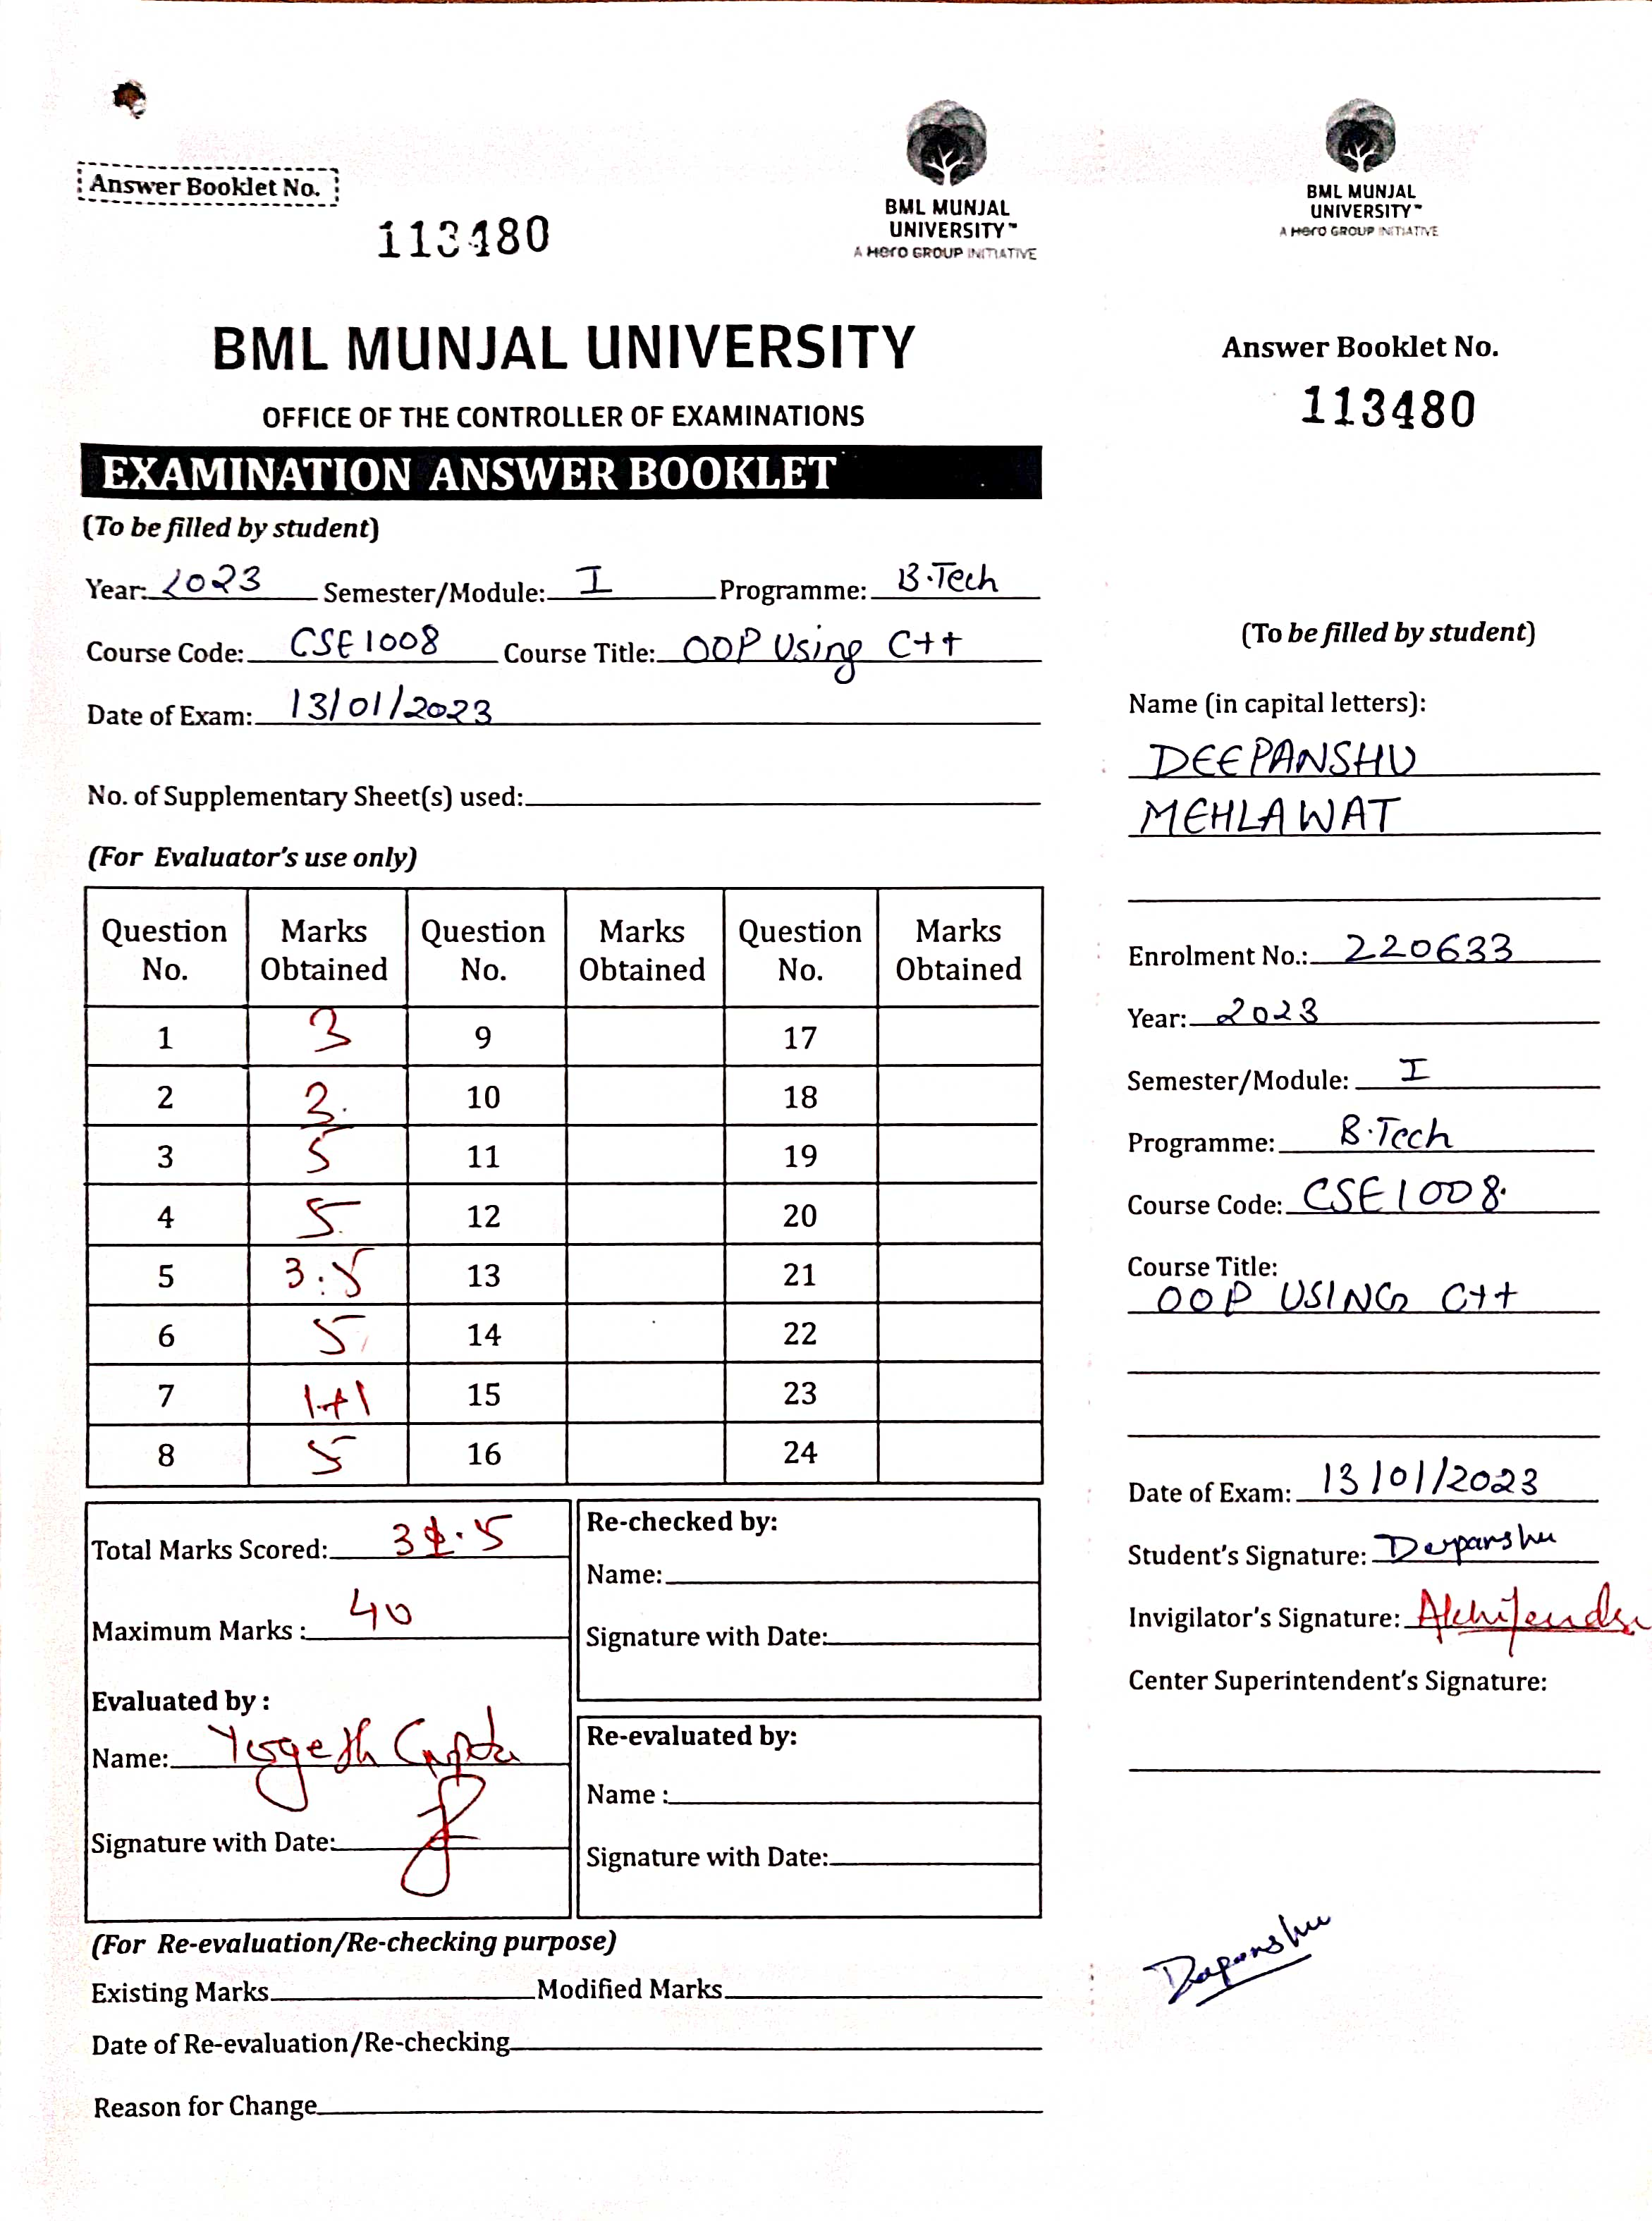 Answer Booklet No.
113480
BML MUNJAL
UNIVERSITY™
A Hero GROUP INITIATIVE
BML MUNJAL UNIVERSITY
OFFICE OF THE CONTROLLER OF EXAMINATIONS
EXAMINATION ANSWER BOOKLET
(To be filled by student)
Year: 2023 Semester/Module: I Programme: B.Tech
Course Code: CSE1008 Course Title: OOP Using C++
Date of Exam: 13/01/2023
No. of Supplementary Sheet(s) used:
(For Evaluator's use only)
Question No. Marks Obtained Question No. Marks Obtained Question No. Marks Obtained
1 3 9 17
2 3. 10 18
3 5 11 19
4 5 12 20
5 3.5 13 21
6 5 14 22
7 1+1 15 23
8 5 16 24
Total Marks Scored: .5
Maximum Marks : 40
Evaluated by :
Name: Yogesh Gupta
Signature with Date:
Re-checked by:
Name:
Signature with Date:
Re-evaluated by:
Name :
Signature with Date:
(For Re-evaluation/Re-checking purpose)
Existing Marks Modified Marks
Date of Re-evaluation/Re-checking
Reason for Change
BML MUNJAL
UNIVERSITY™
A Hero GROUP INITIATIVE
Answer Booklet No.
113480
(To be filled by student)
Name (in capital letters):
DEEPANSHU
MEHLAWAT
Enrolment No.: 220633
Year: 2023
Semester/Module: I
Programme: B.Tech
Course Code: CSE1008.
Course Title:
OOP USING C++
Date of Exam: 13/01/2023
Student's Signature: Deepanshu
Invigilator's Signature:
Center Superintendent's Signature:
Deepanshu